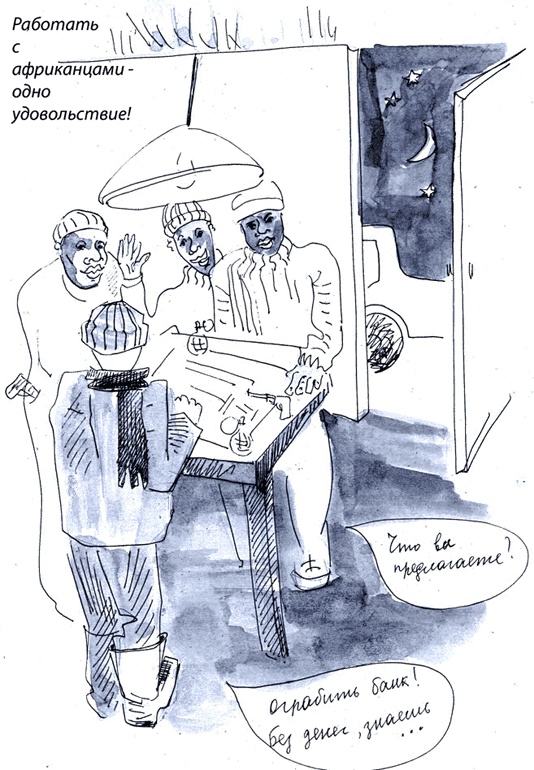 Работать
с
африканцами -
одно
удовольствие!
Что вы
предлагаете?
ограбить банк!
Без денег, знаешь
...